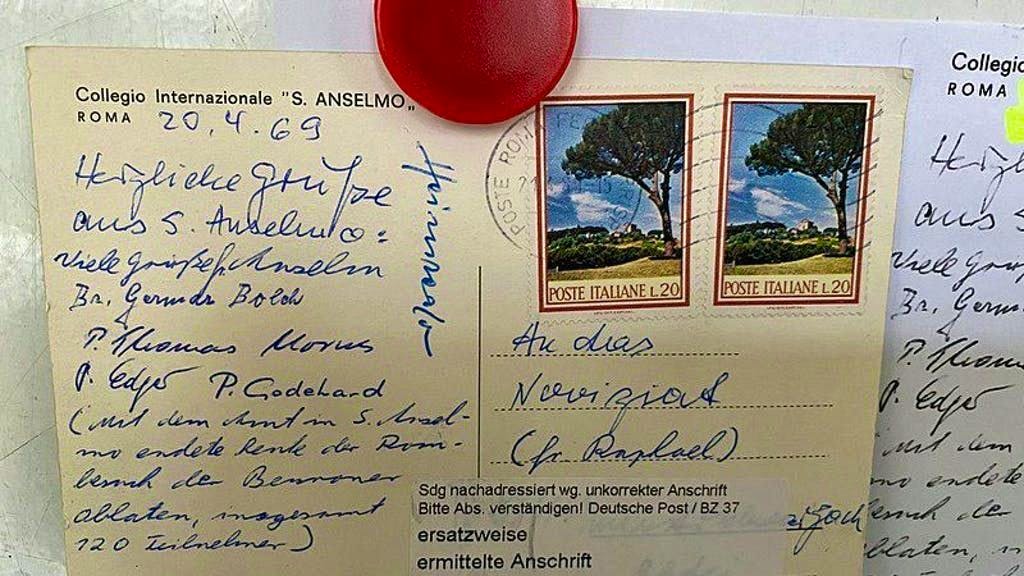 Collegio Internazionale "S. ANSELMO"
ROMA
20.4.69
Herzliche Grüße
aus S. Anselmo:
Viele Grüße Anselm
Br. German
P. Thomas Morus
P. Godehard
(Mit dem Amt in S. Ansel-
mo endete heute der Rom-
besuch der Beuroner
oblaten, insgesamt
120 Teilnehmer)
POSTE ROMA
POSTE ITALIANE L.20
POSTE ITALIANE L.20
An das
Noviziat
(fr Raphael)
Sdg nachadressiert wg. unkorrekter Anschrift
Bitte Abs. verständigen! Deutsche Post / BZ 37
ersatzweise
ermittelte Anschrift
Collegio
ROMA
aus S.
Viele Grü
Br. Germ
P. Thoma
mit dem
mo endete